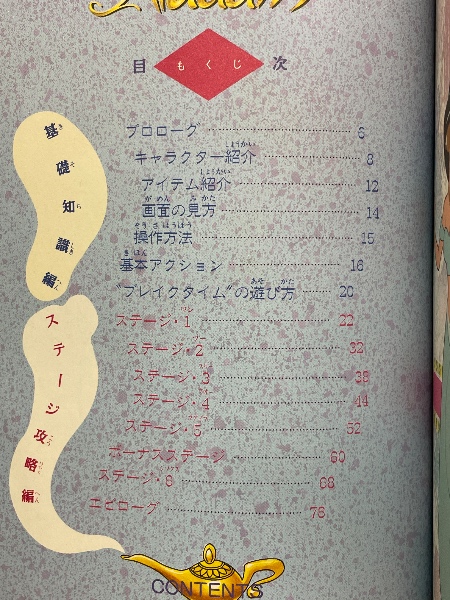 Aladdin
目 もくじ 次
基礎知識編
プロローグ 6
キャラクター紹介 8
アイテム紹介 12
画面の見方 14
操作方法 15
基本アクション 16
"ブレイクタイム"の遊び方 20
ステージ攻略編
ステージ・1 22
ステージ・2 32
ステージ・3 38
ステージ・4 44
ステージ・5 52
ボーナスステージ 60
ステージ・6 68
エピローグ 76
CONTENTS